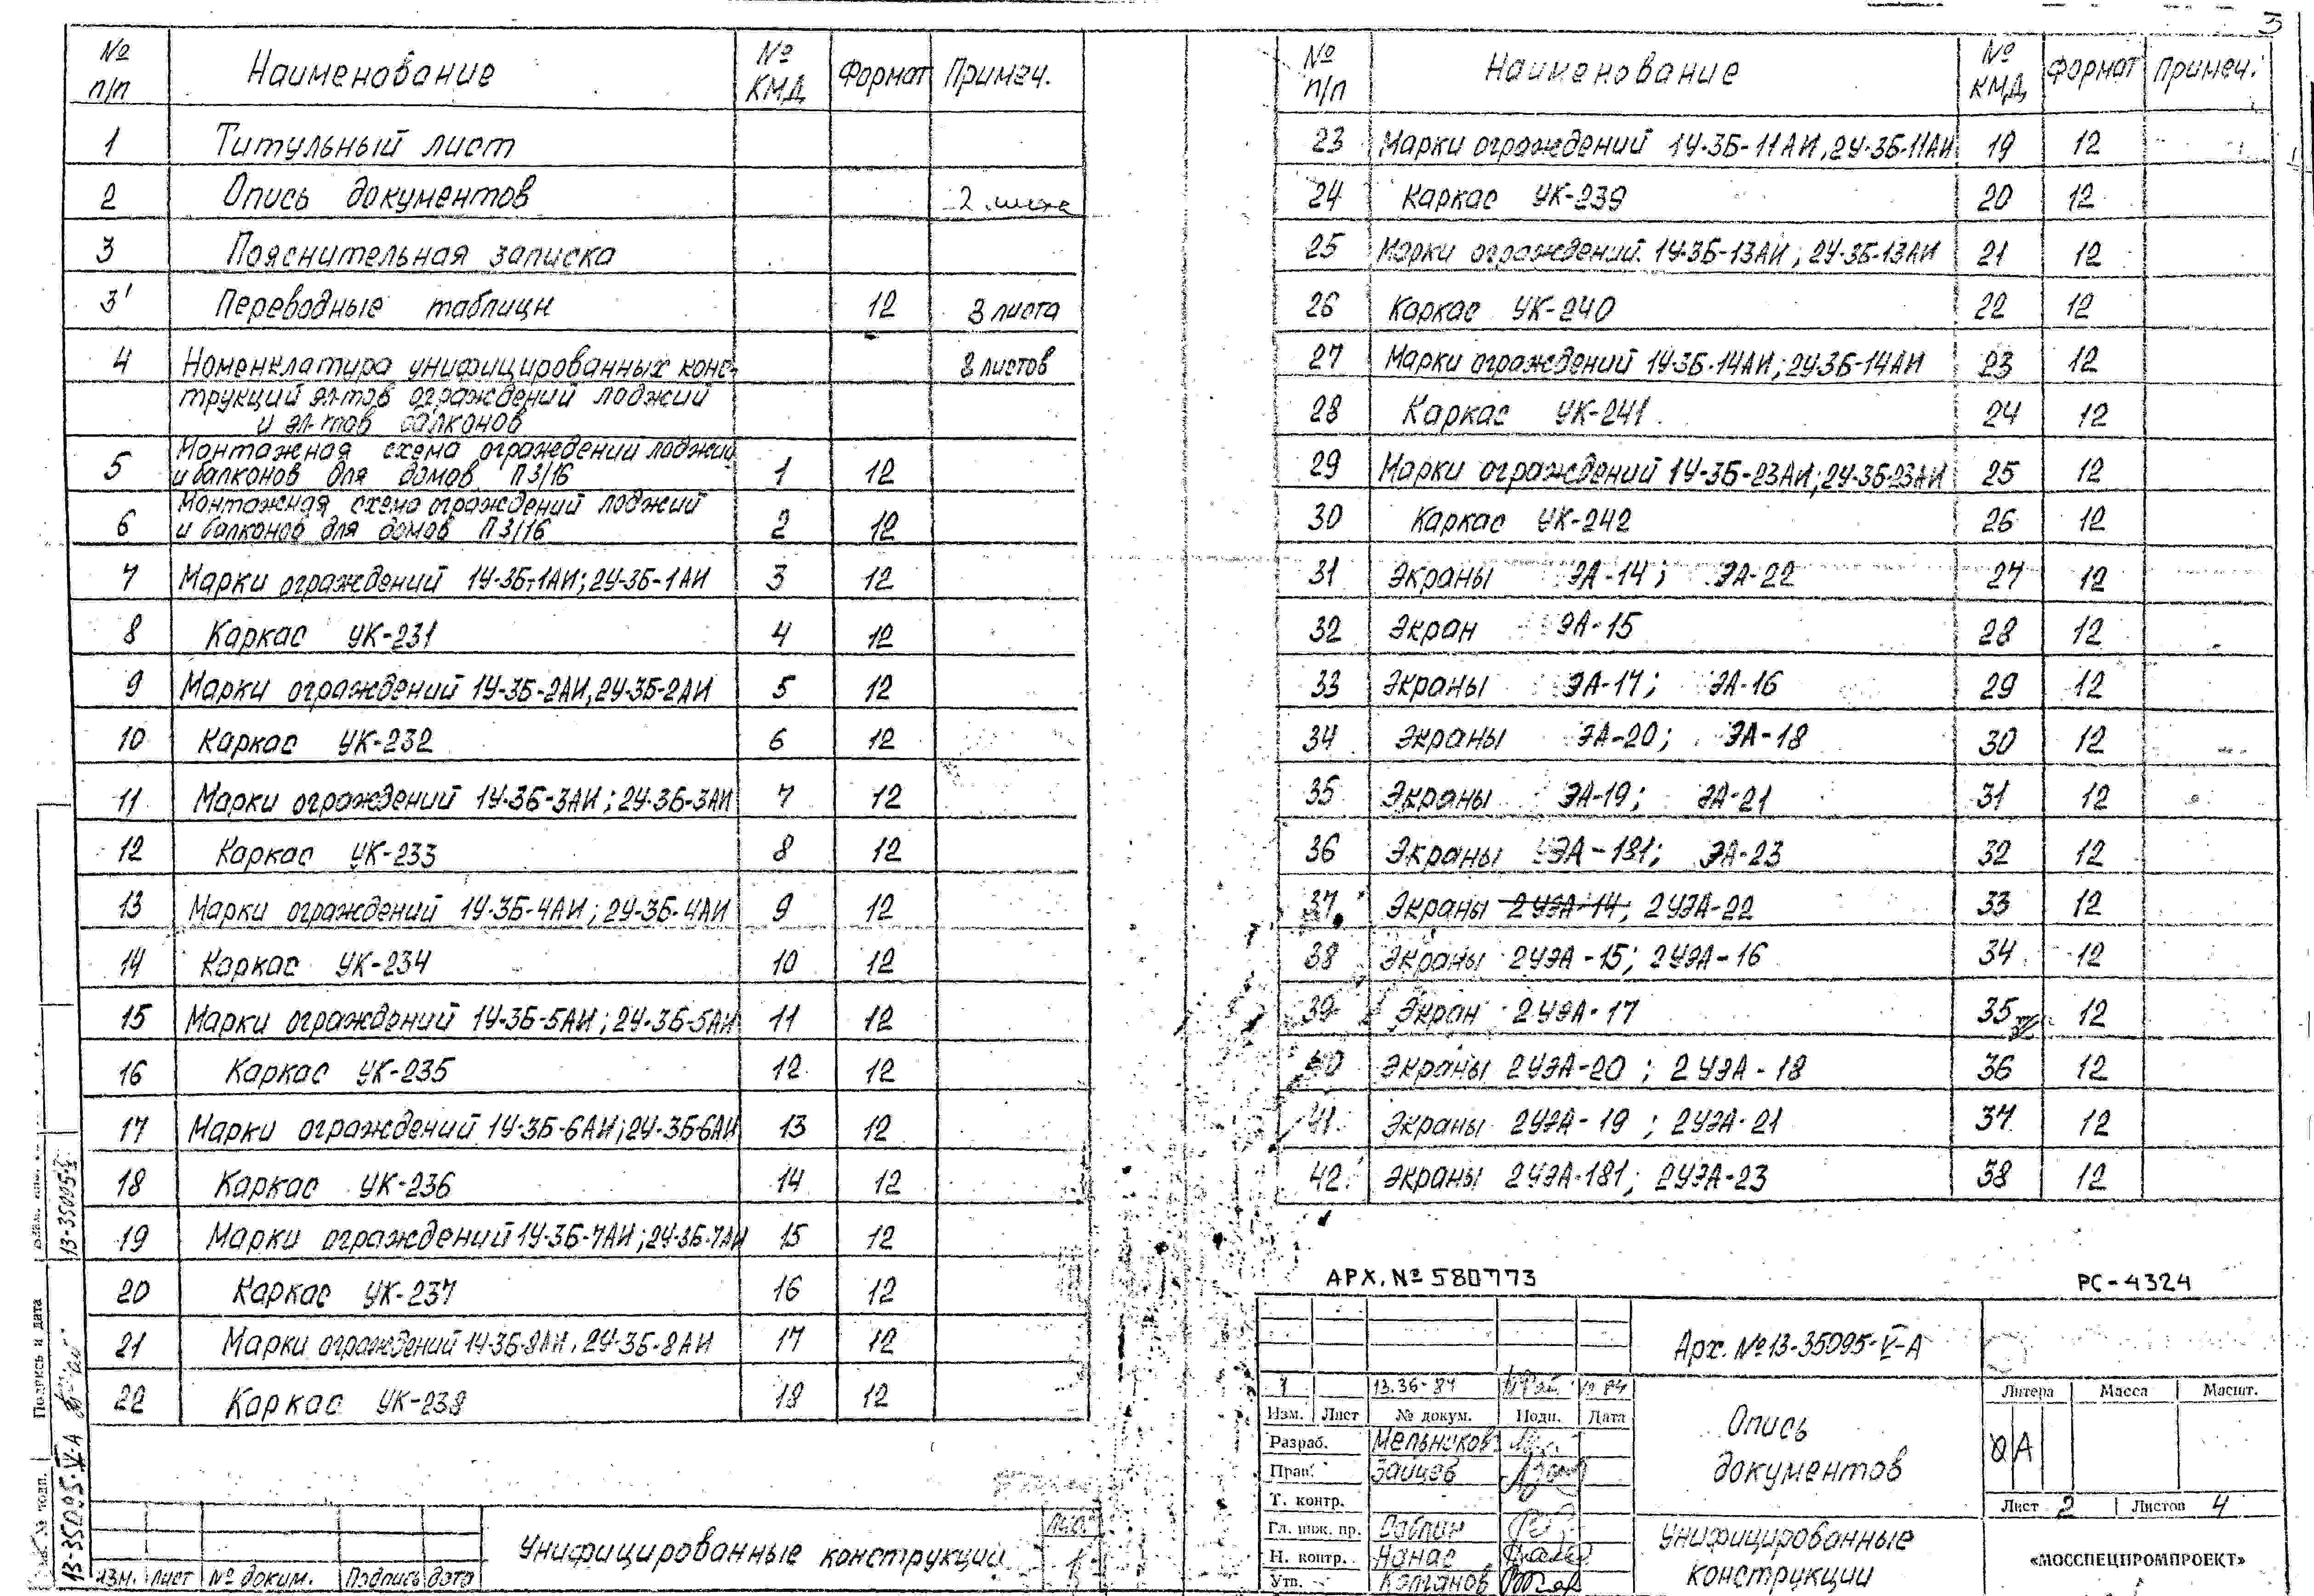 3
№ п/п Наименование № КМД Формат Примеч.
1 Титульный лист
2 Опись документов 2 листа
3 Пояснительная записка
3' Переводные таблицы 12 3 листа
4 Номенклатура унифицированных конс- 8 листов
трукций эл-тов ограждений лоджий
и эл-тов балконов
5 Монтажная схема ограждений лоджий
и балконов для домов П3/16 1 12
6 Монтажная схема ограждений лоджий
и балконов для домов П3/16 2 12
7 Марки ограждений 1У-3Б-1АИ; 2У-3Б-1АИ 3 12
8 Каркас УК-231 4 12
9 Марки ограждений 1У-3Б-2АИ, 2У-3Б-2АИ 5 12
10 Каркас УК-232 6 12
11 Марки ограждений 1У-3Б-3АИ; 2У-3Б-3АИ 7 12
12 Каркас УК-233 8 12
13 Марки ограждений 1У-3Б-4АИ; 2У-3Б-4АИ 9 12
14 Каркас УК-234 10 12
15 Марки ограждений 1У-3Б-5АИ; 2У-3Б-5АИ 11 12
16 Каркас УК-235 12 12
17 Марки ограждений 1У-3Б-6АИ; 2У-3Б-6АИ 13 12
18 Каркас УК-236 14 12
19 Марки ограждений 1У-3Б-7АИ; 2У-3Б-7АИ 15 12
20 Каркас УК-237 16 12
21 Марки ограждений 1У-3Б-8АИ, 2У-3Б-8АИ 17 12
22 Каркас УК-238 18 12
Изм. Лист № доким. Подпись дата
Унифицированные конструкции
Лист
1
№ п/п Наименование № КМД Формат Примеч.
23 Марки ограждений 1У-3Б-11АИ, 2У-3Б-11АИ 19 12
24 Каркас УК-239 20 12
25 Марки ограждений 1У-3Б-13АИ; 2У-3Б-13АИ 21 12
26 Каркас УК-240 22 12
27 Марки ограждений 1У-3Б-14АИ; 2У-3Б-14АИ 23 12
28 Каркас УК-241 24 12
29 Марки ограждений 1У-3Б-23АИ; 2У-3Б-23АИ 25 12
30 Каркас УК-242 26 12
31 Экраны ЭА-14; ЭА-22 27 12
32 Экран ЭА-15 28 12
33 Экраны ЭА-17; ЭА-16 29 12
34 Экраны ЭА-20; ЭА-18 30 12
35 Экраны ЭА-19; ЭА-21 31 12
36 Экраны УЭА-181; ЭА-23 32 12
37 Экраны 2УЭА-14, 2УЭА-22 33 12
38 Экраны 2УЭА-15; 2УЭА-16 34 12
39 Экран 2УЭА-17 35 12
40 Экраны 2УЭА-20; 2УЭА-18 36 12
41 Экраны 2УЭА-19; 2УЭА-21 37 12
42 Экраны 2УЭА-181; 2УЭА-23 38 12
АРХ. № 580773 РС-4324
Арх. № 13-35095-V-А
1 13.36-84
Изм. Лист № докум. Подп. Дата
Разраб. Мельников
Пров. Зайцев
Т. контр.
Гл. инж. пр. Саблин
Н. контр. Нанас
Утв. Колганов
Опись
документов
Унифицированные
конструкции
Литера Масса Масшт.
А
Лист 2 Листов 4
«МОССПЕЦПРОМПРОЕКТ»
13-35095-V
Подпись и дата
13-35095-V-А